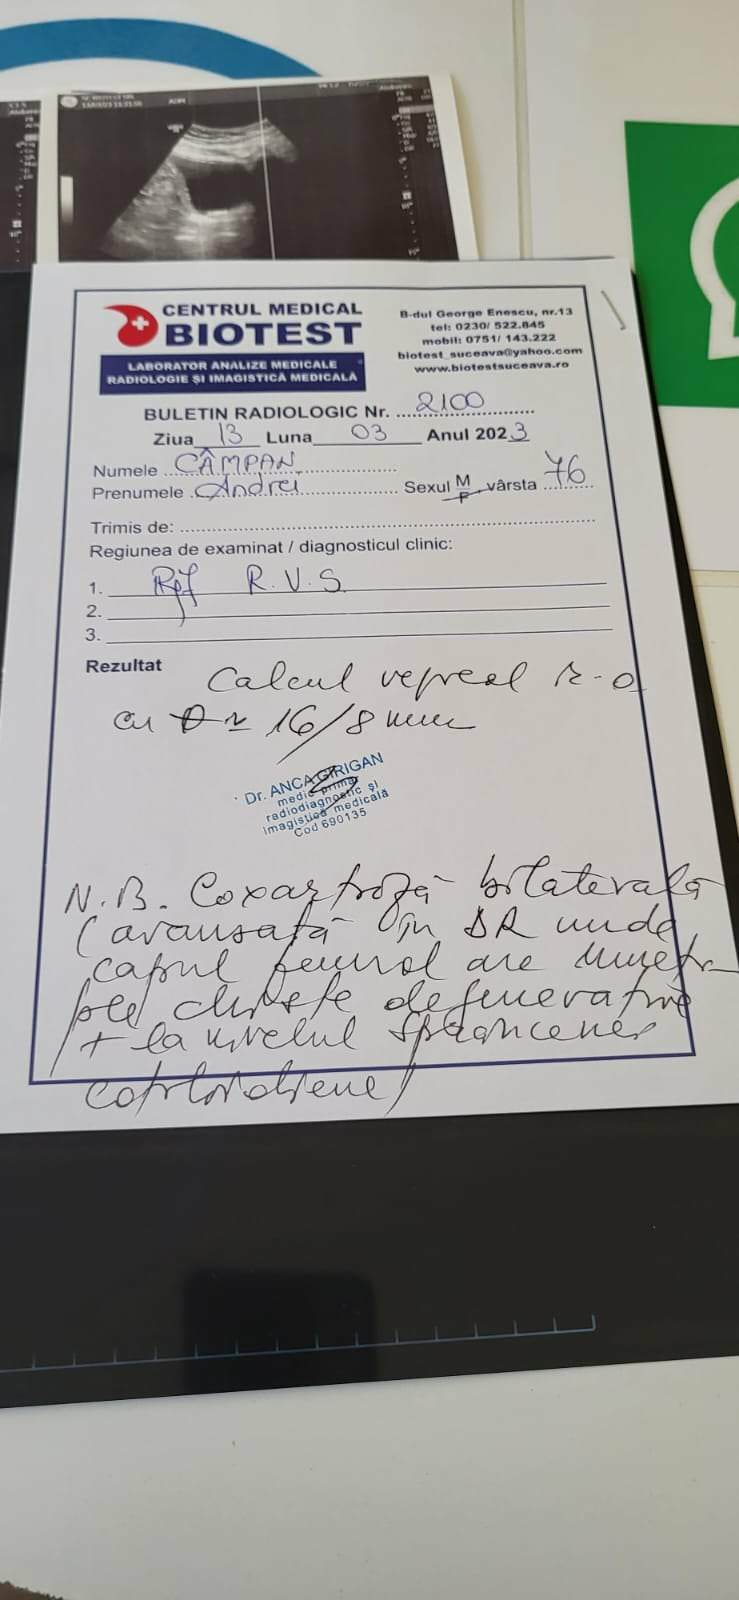 CENTRUL MEDICAL
BIOTEST
LABORATOR ANALIZE MEDICALE
RADIOLOGIE ȘI IMAGISTICĂ MEDICALĂ
B-dul George Enescu, nr.13
tel: 0230/ 522.845
mobil: 0751/ 143.222
biotest_suceava@yahoo.com
www.biotestsuceava.ro
BULETIN RADIOLOGIC Nr. 2100
Ziua 13 Luna 03 Anul 2023
Numele CÂMPAN
Prenumele Andrei Sexul M/F, vârsta 76
Trimis de:
Regiunea de examinat / diagnosticul clinic:
1. R.V.S.
2.
3.
Rezultat Calcul vezical
cu ≈ 16/8 mm
Dr. ANCA GIRIGAN
medic primar
radiodiagnostic și
imagistică medicală
Cod 690135
N.B. Coxartroză bilaterală
(avansată în DR unde
capul femural are
chiste degenerative
+ la nivelul sprâncenei
cotiloidiene)